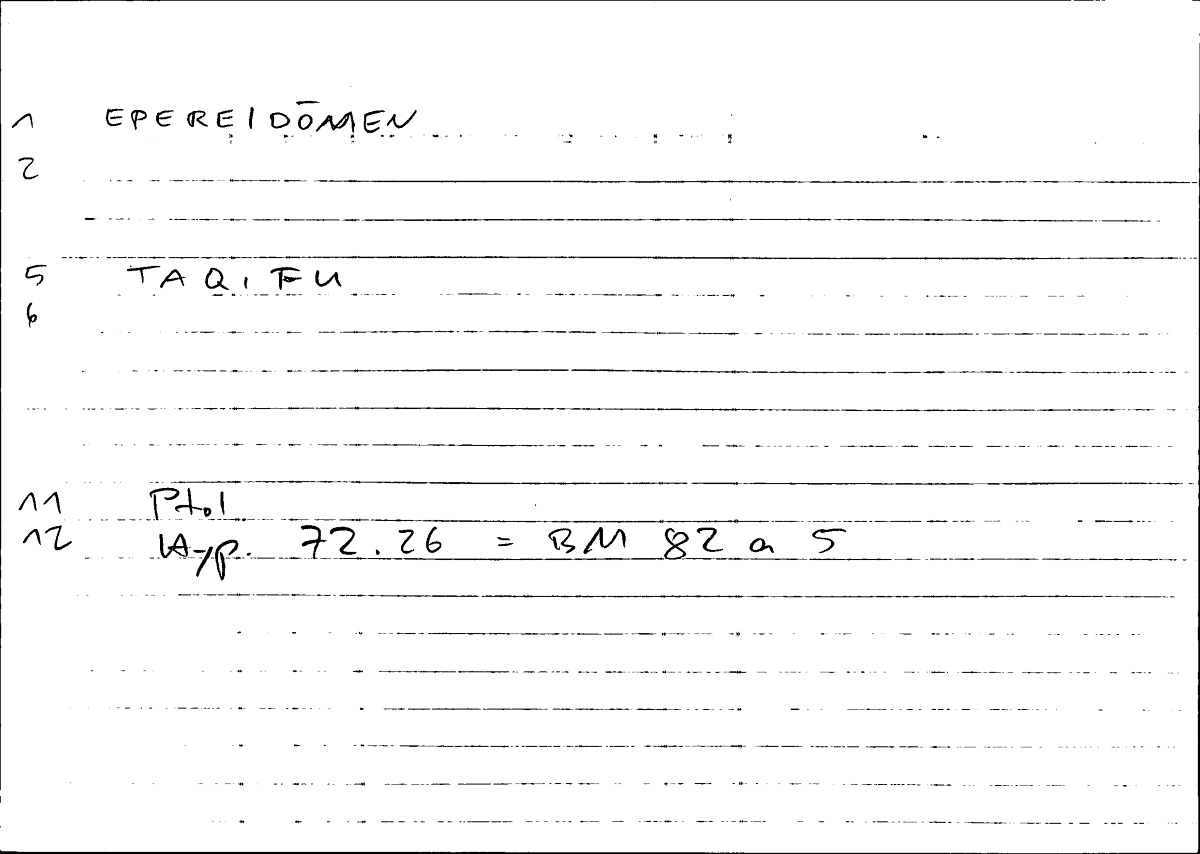 1 EPEREIDŌMEN
2
5 TAQ, FU
6
11 Ptol
12 Hyp. 72.26 = BM 82 a 5